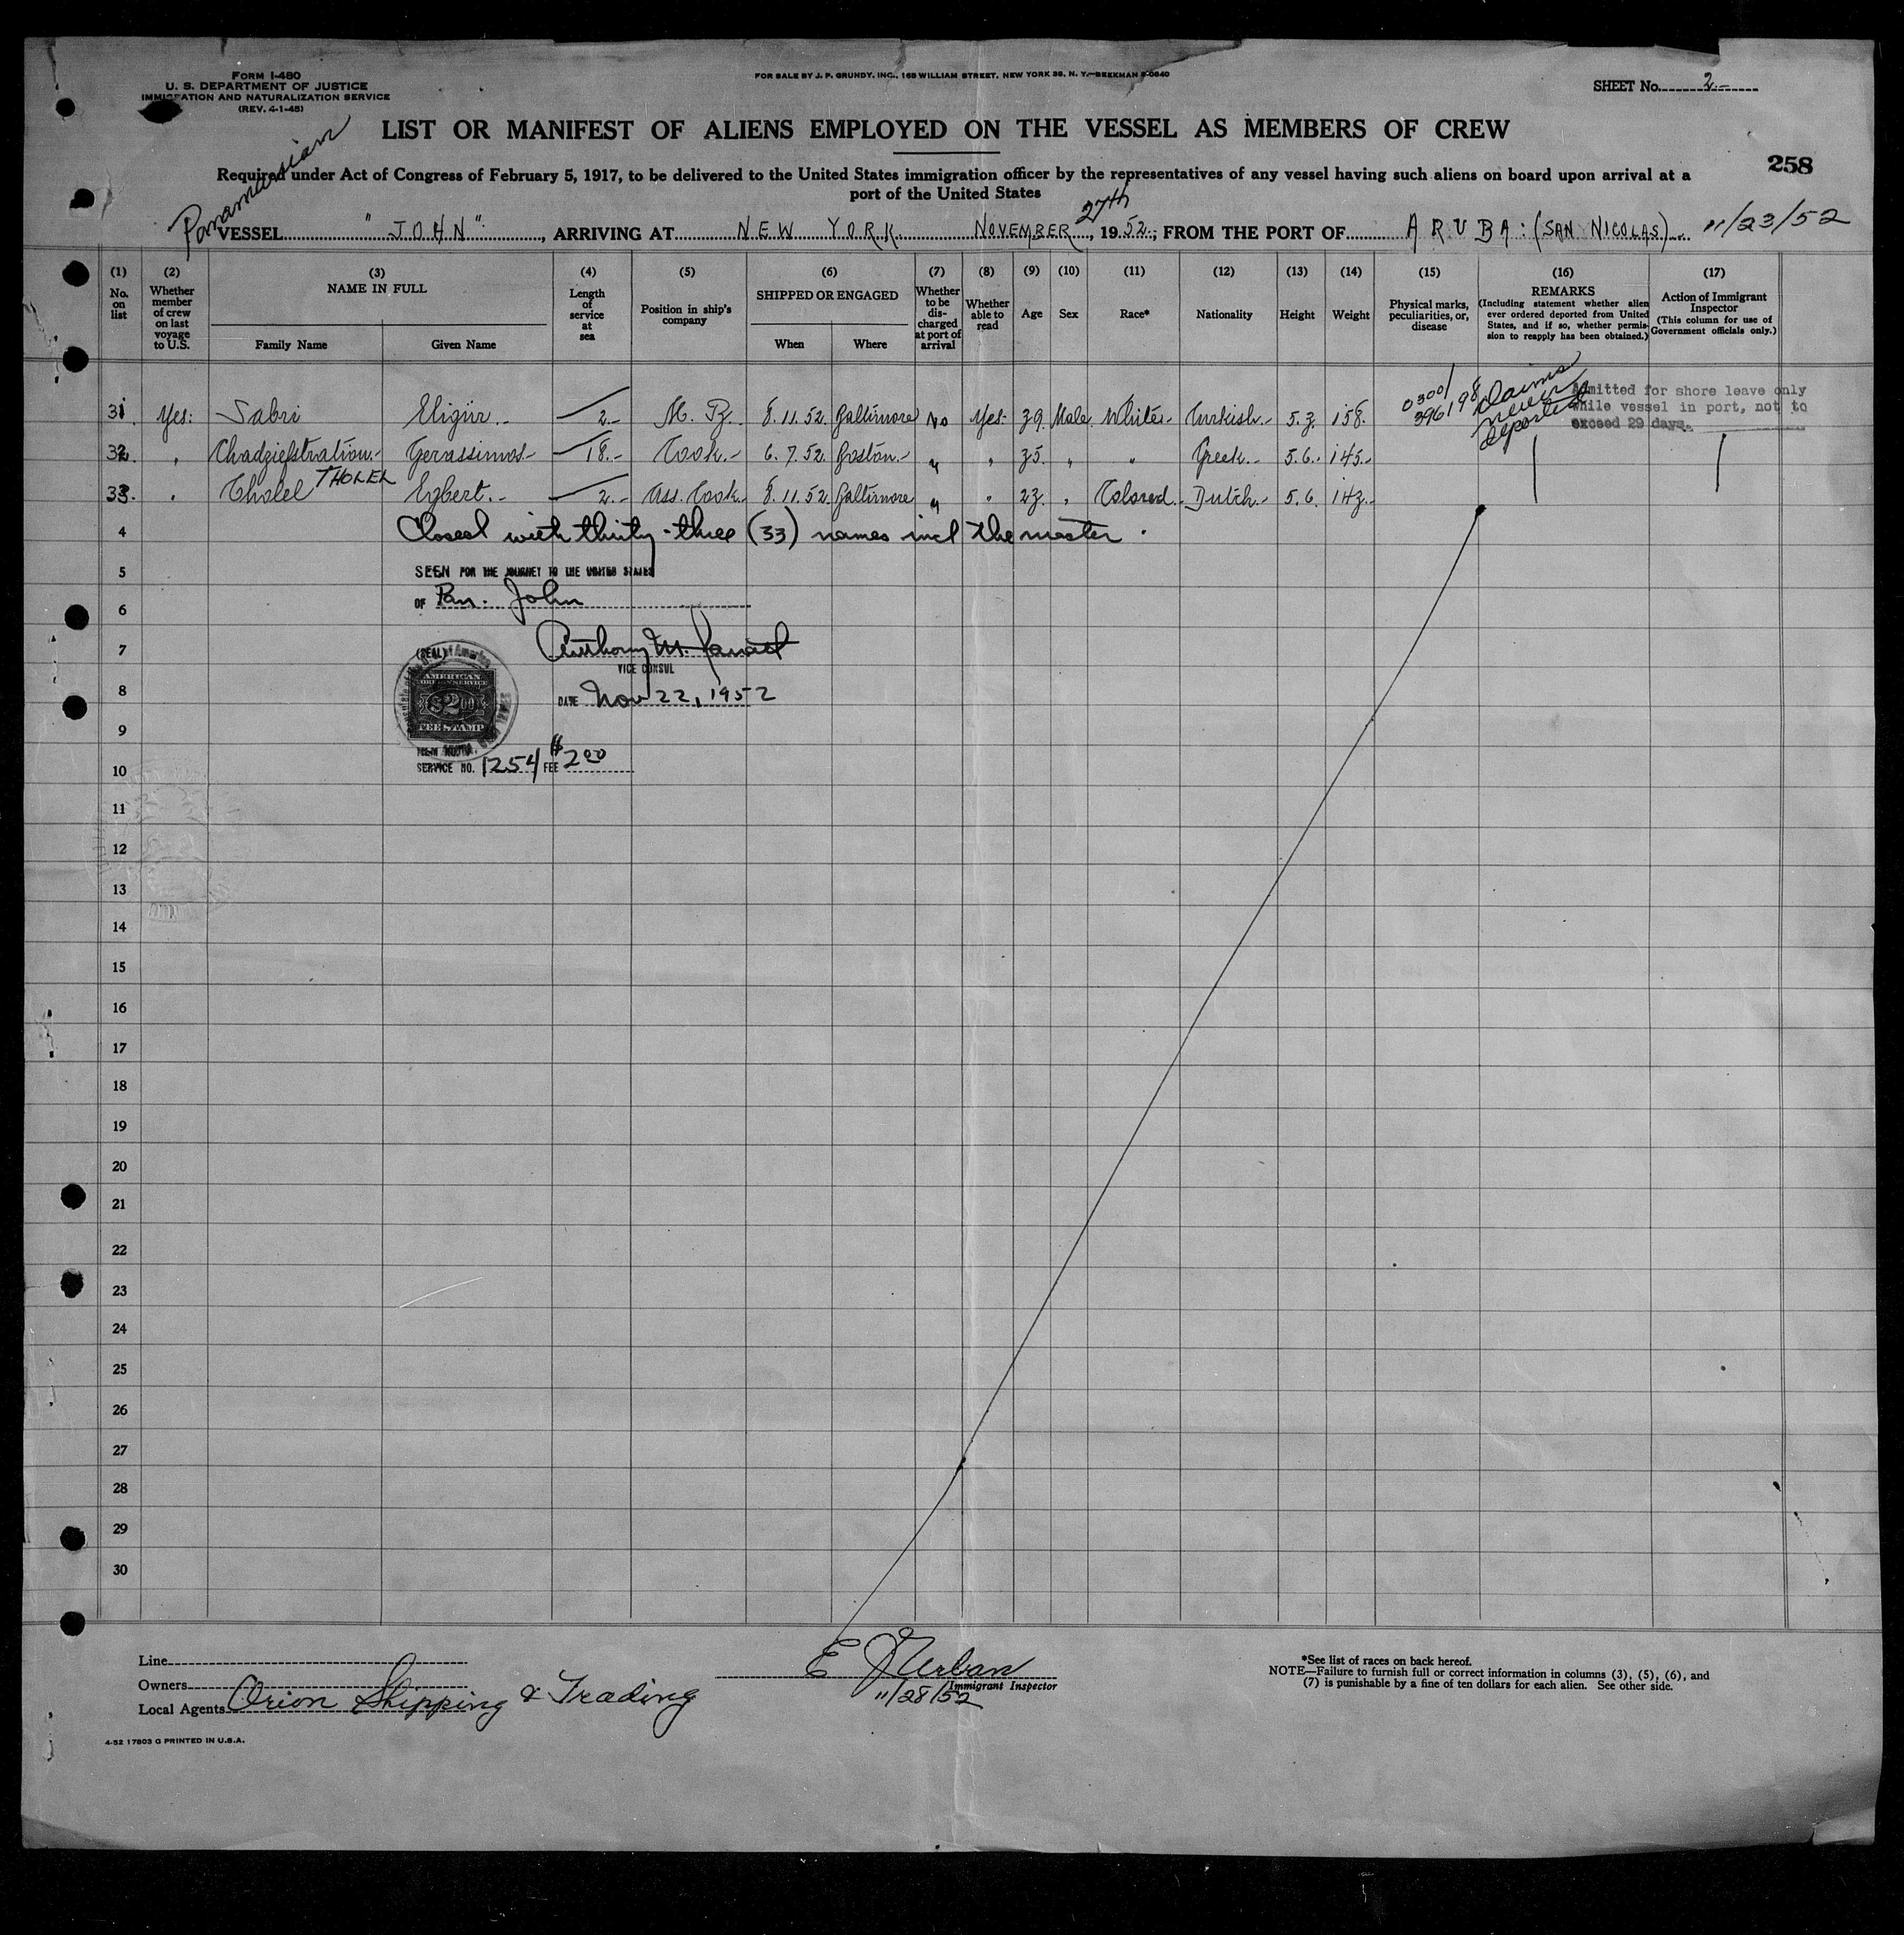 FORM I-480
U. S. DEPARTMENT OF JUSTICE
IMMIGRATION AND NATURALIZATION SERVICE
(REV. 4-1-45)
FOR SALE BY J. P. GRUNDY, INC., 165 WILLIAM STREET, NEW YORK 38, N. Y.—BEEKMAN 3-0640
SHEET No. 2.-
Panamanian
LIST OR MANIFEST OF ALIENS EMPLOYED ON THE VESSEL AS MEMBERS OF CREW
258
Required under Act of Congress of February 5, 1917, to be delivered to the United States immigration officer by the representatives of any vessel having such aliens on board upon arrival at a
port of the United States
VESSEL "JOHN", ARRIVING AT NEW YORK NOVEMBER 27th, 1952; FROM THE PORT OF ARUBA: (SAN NICOLAS) 11/23/52
(1) No. on list
(2) Whether member of crew on last voyage to U.S.
(3) NAME IN FULL Family Name Given Name
(4) Length of service at sea
(5) Position in ship's company
(6) SHIPPED OR ENGAGED When Where
(7) Whether to be discharged at port of arrival
(8) Whether able to read
(9) Age
(10) Sex
(11) Race*
(12) Nationality
(13) Height
(14) Weight
(15) Physical marks, peculiarities, or, disease
(16) REMARKS (Including statement whether alien ever ordered deported from United States, and if so, whether permission to reapply has been obtained.)
(17) Action of Immigrant Inspector (This column for use of Government officials only.)
31. Yes: Sabri Eligür.- 2.- 8.11.52. Baltimore No Yes: 39. Male White.- Turkish.- 5.3. 158. 0300/396198 Claims never deported Admitted for shore leave only
while vessel in port, not to
exceed 29 days.
32. " Gerassimos- 18.- Cook.- 6.7.52. Boston.- " " 35. " " Greek.- 5.6. 145.-
33. " Tholel THOLEL Egbert.- 2.- Ass. Cook.- 8.11.52. Baltimore " " 23. " Colored.- Dutch.- 5.6. 143.-
4 Closed with thirty-three (33) names incl the master.
5 SEEN FOR THE JOURNEY TO THE UNITED STATES
6 OF Pan. John
7 (SEAL) Anthony M.
VICE CONSUL
AMERICAN FOREIGN SERVICE $2.00 FEE STAMP
8 DATE Nov 22, 1952
9
10 SERVICE NO. 1254 FEE $2.00
11
12
13
14
15
16
17
18
19
20
21
22
23
24
25
26
27
28
29
30
Line
Owners
Local Agents Orion Shipping & Trading
E J Urban
Immigrant Inspector
11/28/52
*See list of races on back hereof.
NOTE—Failure to furnish full or correct information in columns (3), (5), (6), and
(7) is punishable by a fine of ten dollars for each alien. See other side.
4-52 17803 G PRINTED IN U.S.A.